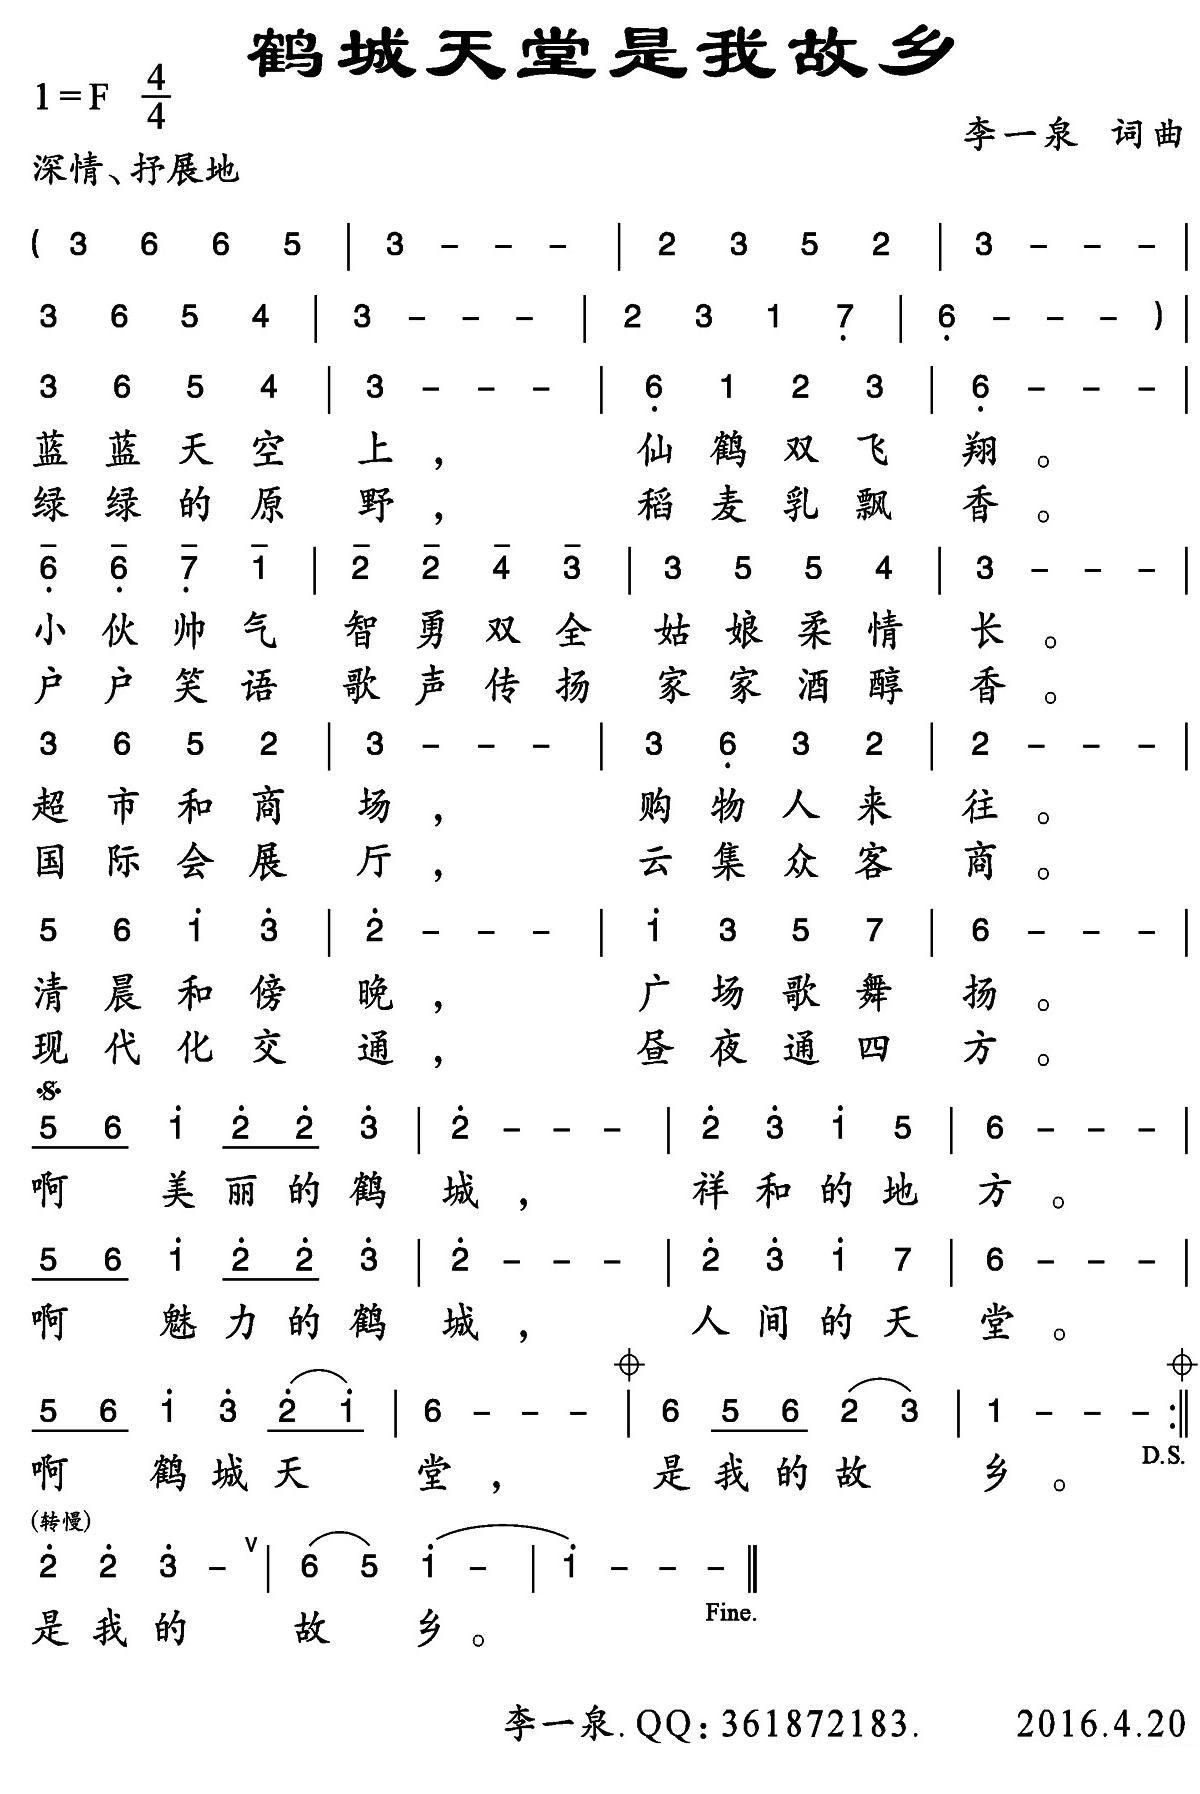 鹤城天堂是我故乡
1=F 4/4
李一泉 词曲
深情、抒展地
( 3 6 6 5 | 3 - - - | 2 3 5 2 | 3 - - - |
3 6 5 4 | 3 - - - | 2 3 1 7̣ | 6̣ - - - ) |
3 6 5 4 | 3 - - - | 6̣ 1 2 3 | 6̣ - - - |
蓝蓝天空上， 仙鹤双飞翔。
绿绿的原野， 稻麦乳飘香。
6̣̅ 6̣̅ 7̣̅ 1̅ | 2̅ 2̅ 4̅ 3̅ | 3 5 5 4 | 3 - - - |
小伙帅气 智勇双全 姑娘柔情长。
户户笑语 歌声传扬 家家酒醇香。
3 6 5 2 | 3 - - - | 3 6̣ 3 2 | 2 - - - |
超市和商场， 购物人来往。
国际会展厅， 云集众客商。
5 6 1̇ 3̇ | 2̇ - - - | 1̇ 3 5 7 | 6 - - - |
清晨和傍晚， 广场歌舞扬。
现代化交通， 昼夜通四方。
𝄋
5 6 1̇ 2̇ 2̇ 3̇ | 2̇ - - - | 2̇ 3̇ 1̇ 5 | 6 - - - |
啊 美丽的鹤城， 祥和的地方。
5 6 1̇ 2̇ 2̇ 3̇ | 2̇ - - - | 2̇ 3̇ 1̇ 7 | 6 - - - |
啊 魅力的鹤城， 人间的天堂。
𝄌 𝄌
5 6 1̇ 3̇ 2̇ 1̇ | 6 - - - | 6 5 6 2 3 | 1 - - - :‖
D.S.
啊 鹤城天堂， 是我的故乡。
(转慢)
2̇ 2̇ 3̇ - ∨ | 6 5 1̇ - | 1̇ - - - ‖
Fine.
是我的 故乡。
李一泉. QQ: 361872183. 2016.4.20